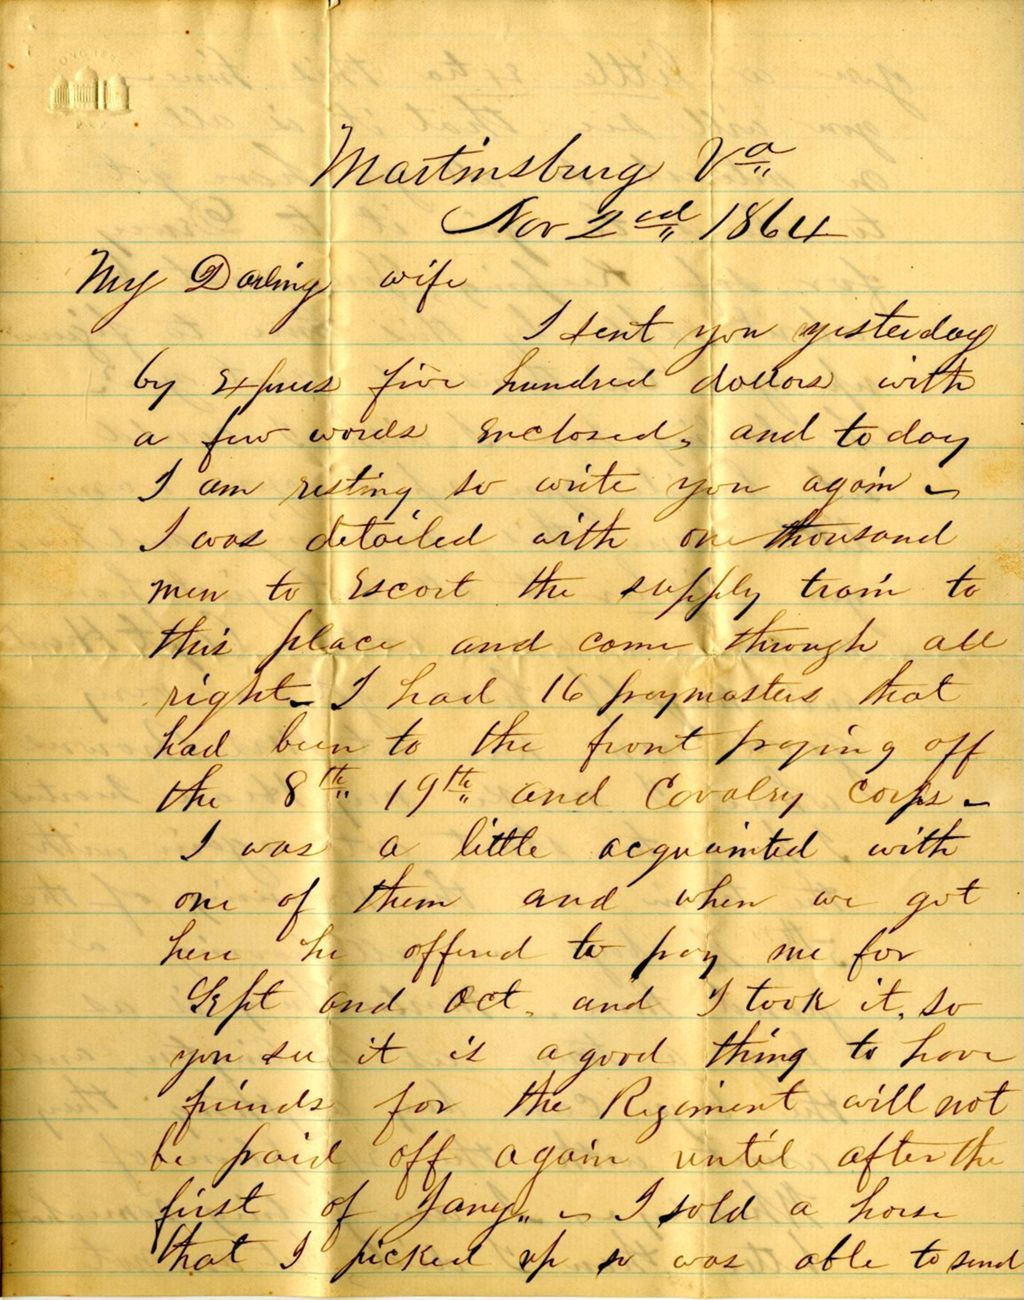 Martinsburg Va
Nov 2nd 1864
My Darling wife
I sent you yesterday
by Express five hundred dollars with
a few words enclosed, and to day
I am resting so write you again –
I was detailed with one thousand
men to Escort the supply train to
this place and come through all
right – I had 16 paymasters that
had been to the front paying off
the 8th 19th and Cavalry corps –
I was a little acquainted with
one of them and when we got
here he offered to pay me for
Sept and Oct, and I took it, so
you see it is a good thing to have
friends for the Regiment will not
be paid off again until after the
first of Jany – I sold a horse
that I picked up so was able to send